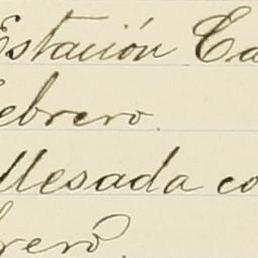 Estación Ca
Febrero.
Mesada co
brero.